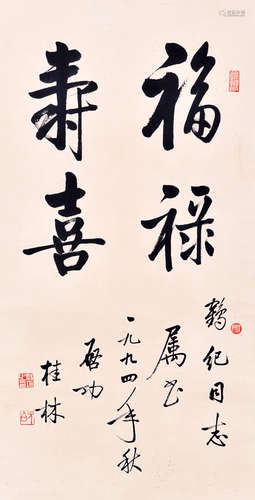 福禄
寿喜
鹤纪同志
属书
一九九四年秋
启功
桂林